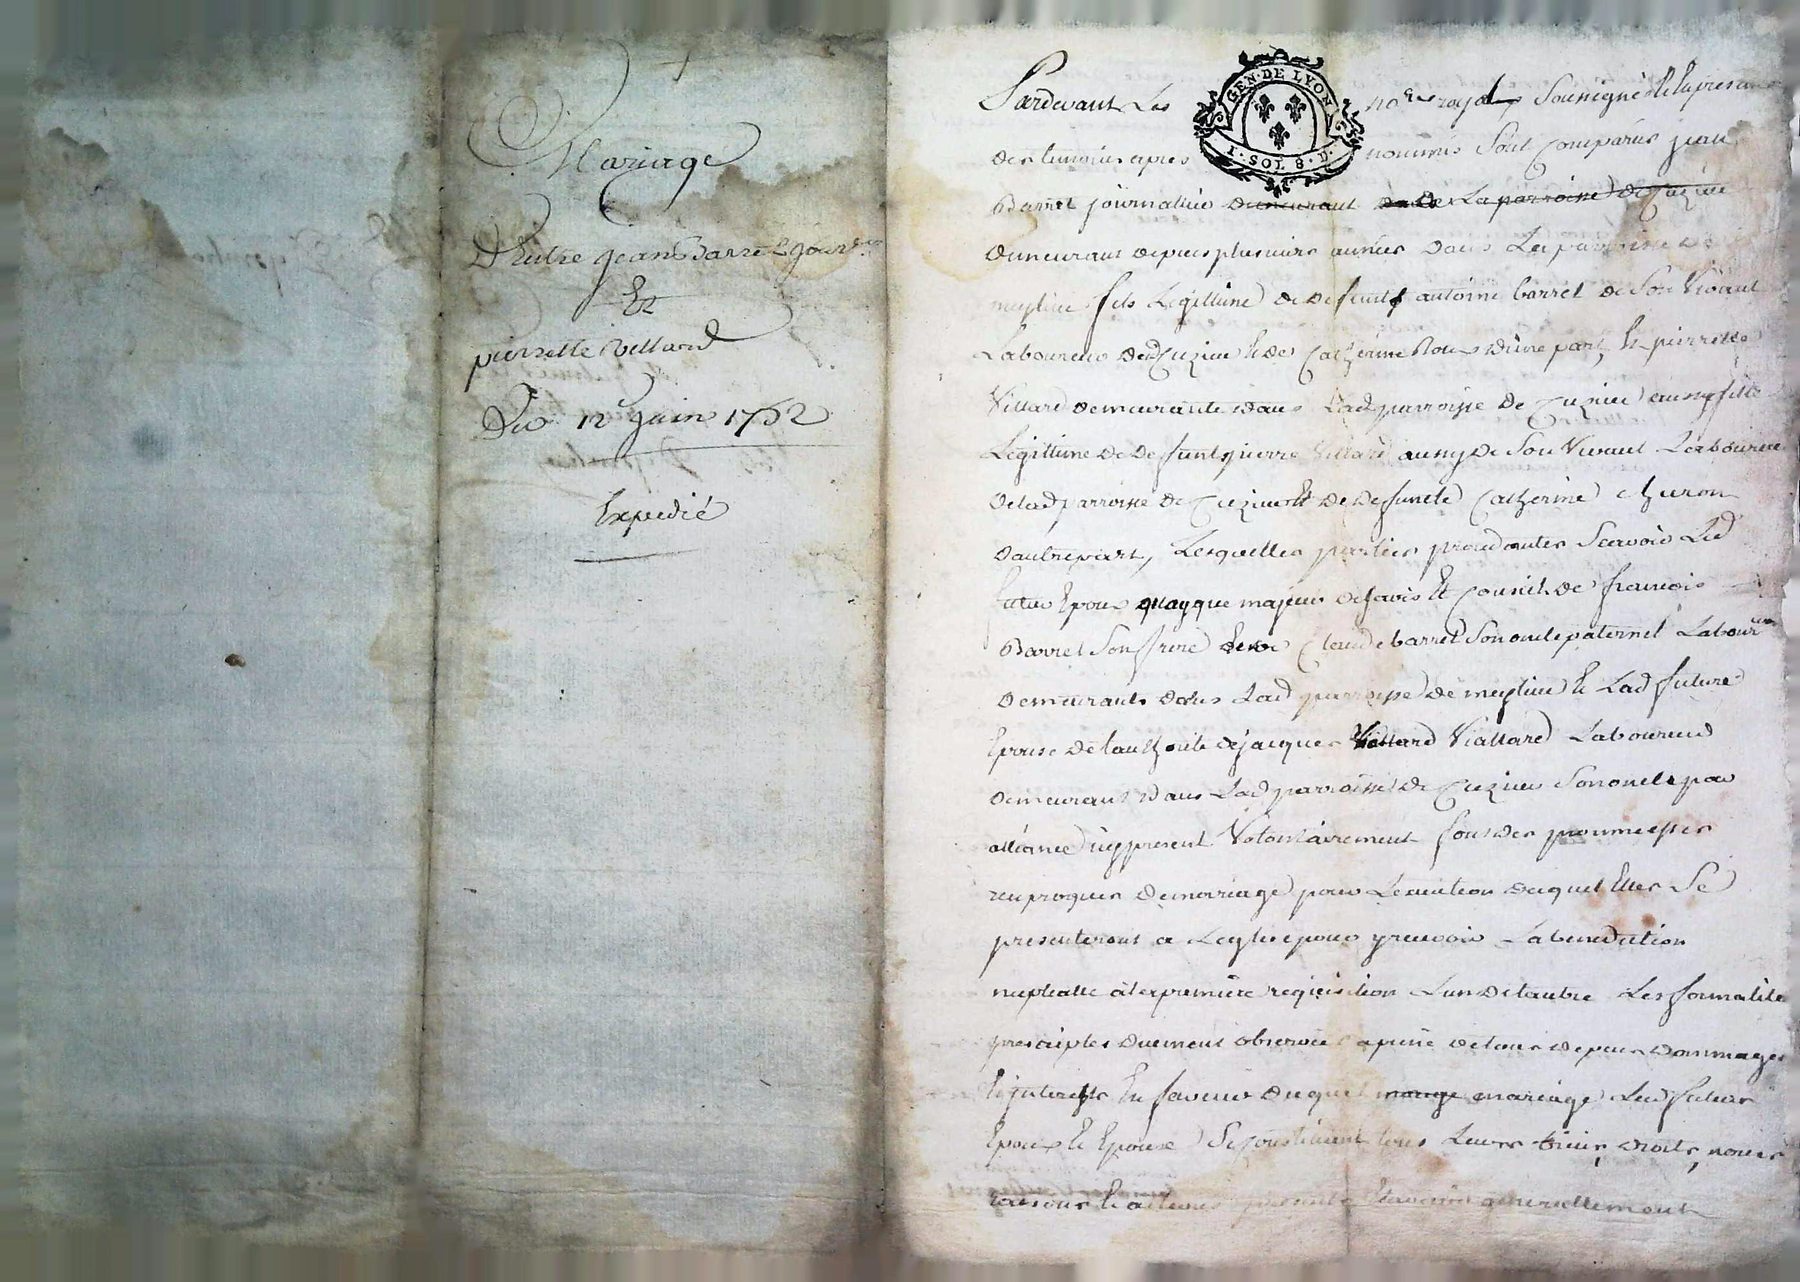 Mariage
D'Entre jean Barret Jour.er
Et
pierrette villard
Du 12e juin 1752
Expedié
GEN·DE LYON
1·SOL 8·D·
Pardevant Les no.res royal soussigné et la presence
des temoins apres nommés sont comparus jean
Barret journallier demeurant dans La parroisse de Cuzieu
demeurant depuis plusieurs années dans La parroisse de
meylieu fils Legittime de defeunt antoine barret de son vivant
Laboureur de Cuzieu et de Catherine d'une part, Et pierrette
Villard demeurante dans Lad parroisse de Cuzieu aussy fille
Legittime de defunt pierre Villard aussy de son vivant Laboureur
de lad parroisse de Cuzieu et de defuncte Catherine cheron
d'autre part, Lesquelles parties procedantes scavoir Led
futur Epoux quoyque majeur de l'avis et conseil de francois
Barret son frere Claude barret son oncle paternel Labour
demeurants dans Lad parroisse de meylieu et Lad future
Epouse de l'authorité de jacques Viallard Laboureur
demeurant dans Lad parroisse de Cuzieu son oncle par
alliance icy present volontairement font des proumesses
reciproques de mariage pour L'execution duquel Elles se
presenteront a Leglise pour y recevoir La benediction
nuptialle à la premiere requisition L'un de l'autre Les formalités
prescriptes duement observées a peine de tous depens dommages
Et interests En faveur duquel mariage Led futurs
Epoux et Epouse se constituent tous Leurs biens, droits, noms
raisons et actions presents generallement